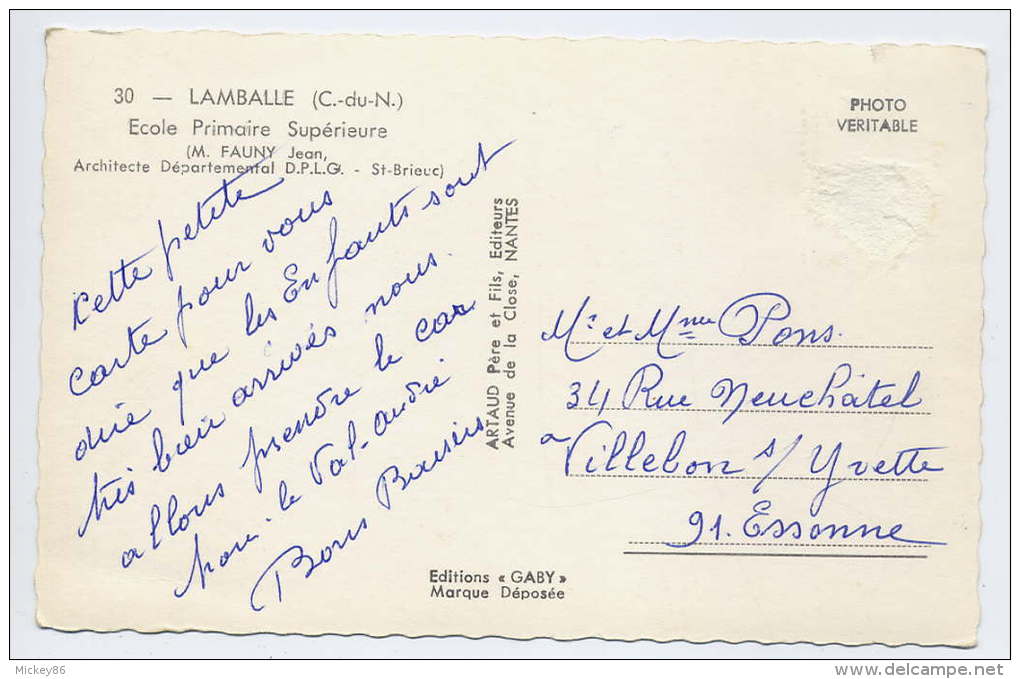 30 — LAMBALLE (C.-du-N.)
Ecole Primaire Supérieure
(M. FAUNY Jean,
Architecte Départemental D.P.L.G. - St-Brieuc)
PHOTO
VERITABLE
Cette petite
carte pour vous
dire que les Enfants sont
très bien arrivés nous
allons prendre le car
pour le Val-André
Bons Baisers
ARTAUD Père et Fils, Editeurs
Avenue de la Close, NANTES
Mr et Mme Pons.
34 Rue Neuchâtel
a Villebon s/ Yvette
91. Essonne
Editions « GABY »
Marque Déposée
Mickey86
www.delcampe.net